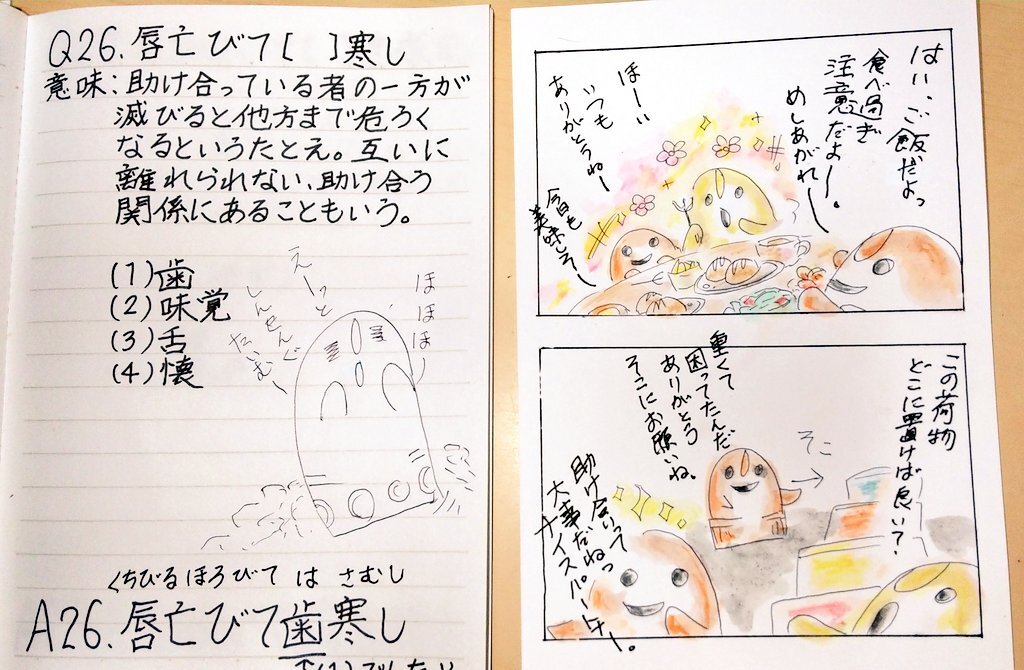 Q26.唇亡びて[　]寒し
意味:助け合っている者の一方が
滅びると他方まで危うく
なるというたとえ。互いに
離れられない、助け合う
関係にあることもいう。
(1)歯
(2)味覚
(3)舌
(4)懐
えーっと
しんきんぐ
たいむ〜
ほほほ〜
くちびるほろびて は さむし
A26.唇亡びて歯寒し
はい、ご飯だよっ
食べ過ぎ
注意だよー。
めしあがれー
ほーい
いつも
ありがとうねー
今日も
美味しそー
この荷物
どこに置けば良い?
そこ
重くて
困ってたんだ
ありがとう
そこにお願いね。
助け合いって
大事だねっ
ナイスパートナー。